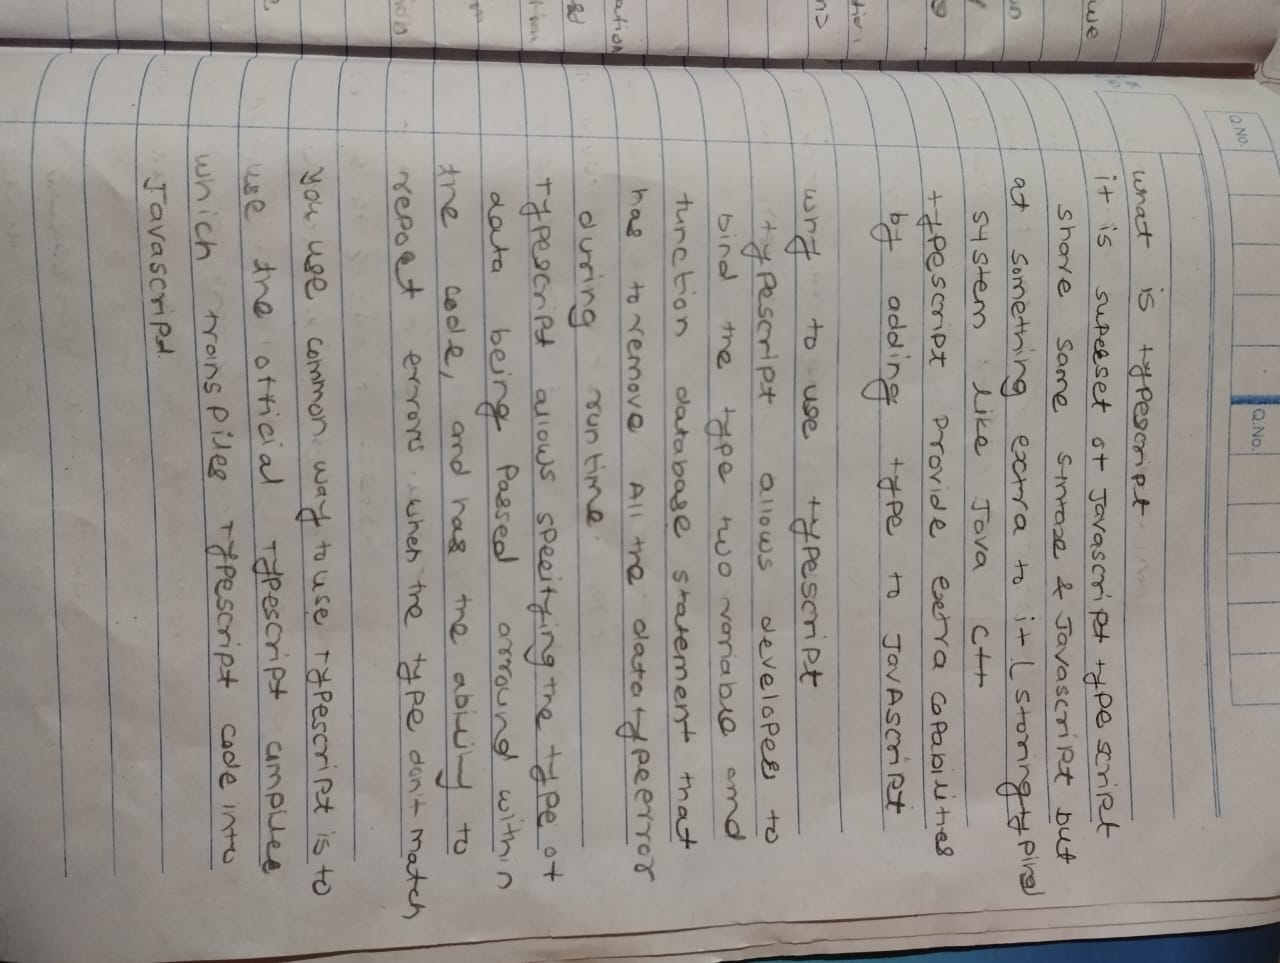 Q.No. Q.No.
what is typescript
it is superset of Javascript type script
shave same sintaxe & Javascript but
at something exctra to it ( storing typing)
system like Java C++
typescript provide extra capabilities
by adding type to JavAscript
why to use typescript
typescript allows developer to
bind the type two variable and
function database statement that
has to remove All the data type error
during run time.
Typescript allows specifying the type of
data being passed arround within
the code, and has the ability to
report errors when the type don't match
you use common way to use Typescript is to
use the official Typescript compiler
which transpiles Typescript code into
Javascript.
we
ation